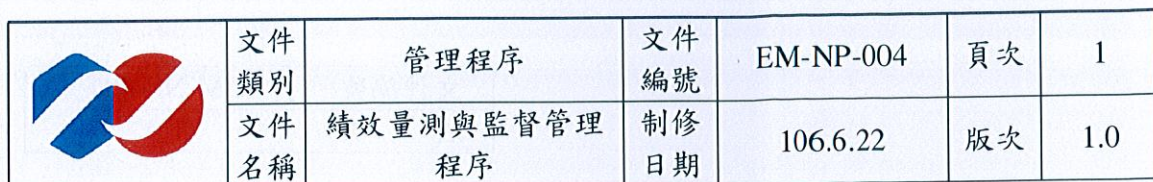 文件類別 管理程序 文件編號 EM-NP-004 頁次 1
文件名稱 績效量測與監督管理程序 制修日期 106.6.22 版次 1.0